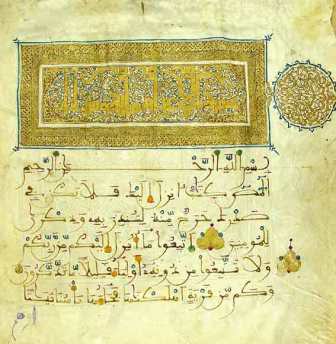 بسم الله الرحمن الرحيم
المص كتب انزل اليك فلا يكن في
صدرك حرج منه لتنذر به وذكرى
للمومنين اتبعوا ما انزل اليكم من ربكم
ولا تتبعوا من دونه اولياء قليلا ما تذكرون
وكم من قرية اهلكنها فجاءها باسنا بيتا
او هم